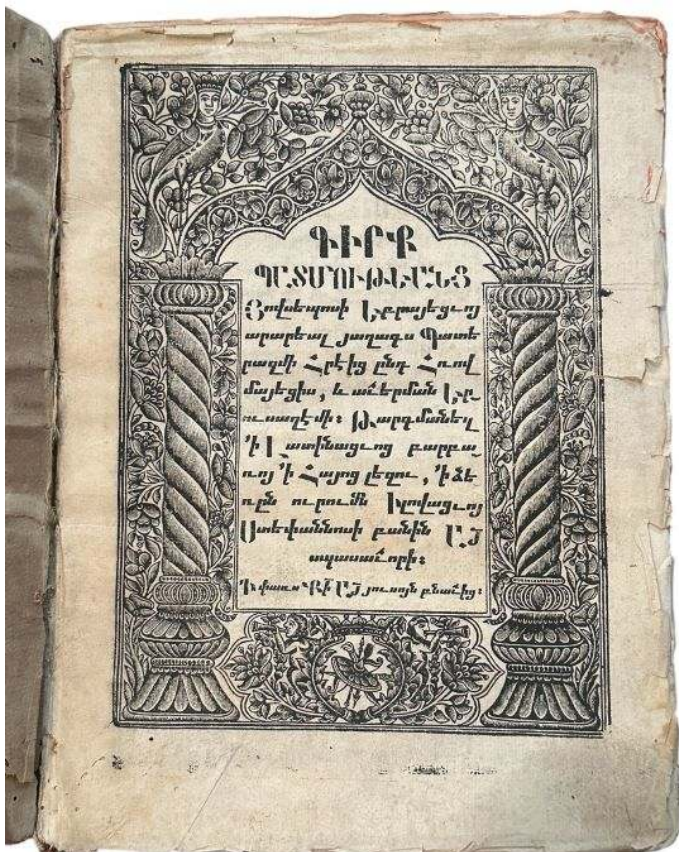 ԳԻՐՔ
ՊԱՏՄՈՒԹԵԱՆՑ
Յովսեպոսի Եբրայեցւոյ
արարեալ յաղագս Պատե
րազմի Հրէից ընդ Հռով
մայեցիս, և աւերման Եր-
ուսաղէմի։ Թարգմանեալ
՚ի Լատինացւոց բարբա
ռոյ ՚ի Հայոց լեզու, ՚ի ձե
ռըն ուրումն Իլովացւոյ
Ստեփաննոսի բանին ԱՅ
սպասաւորի։
՚Ի փառս ՔԻ ԱՅ յուսոյն բնաւից։